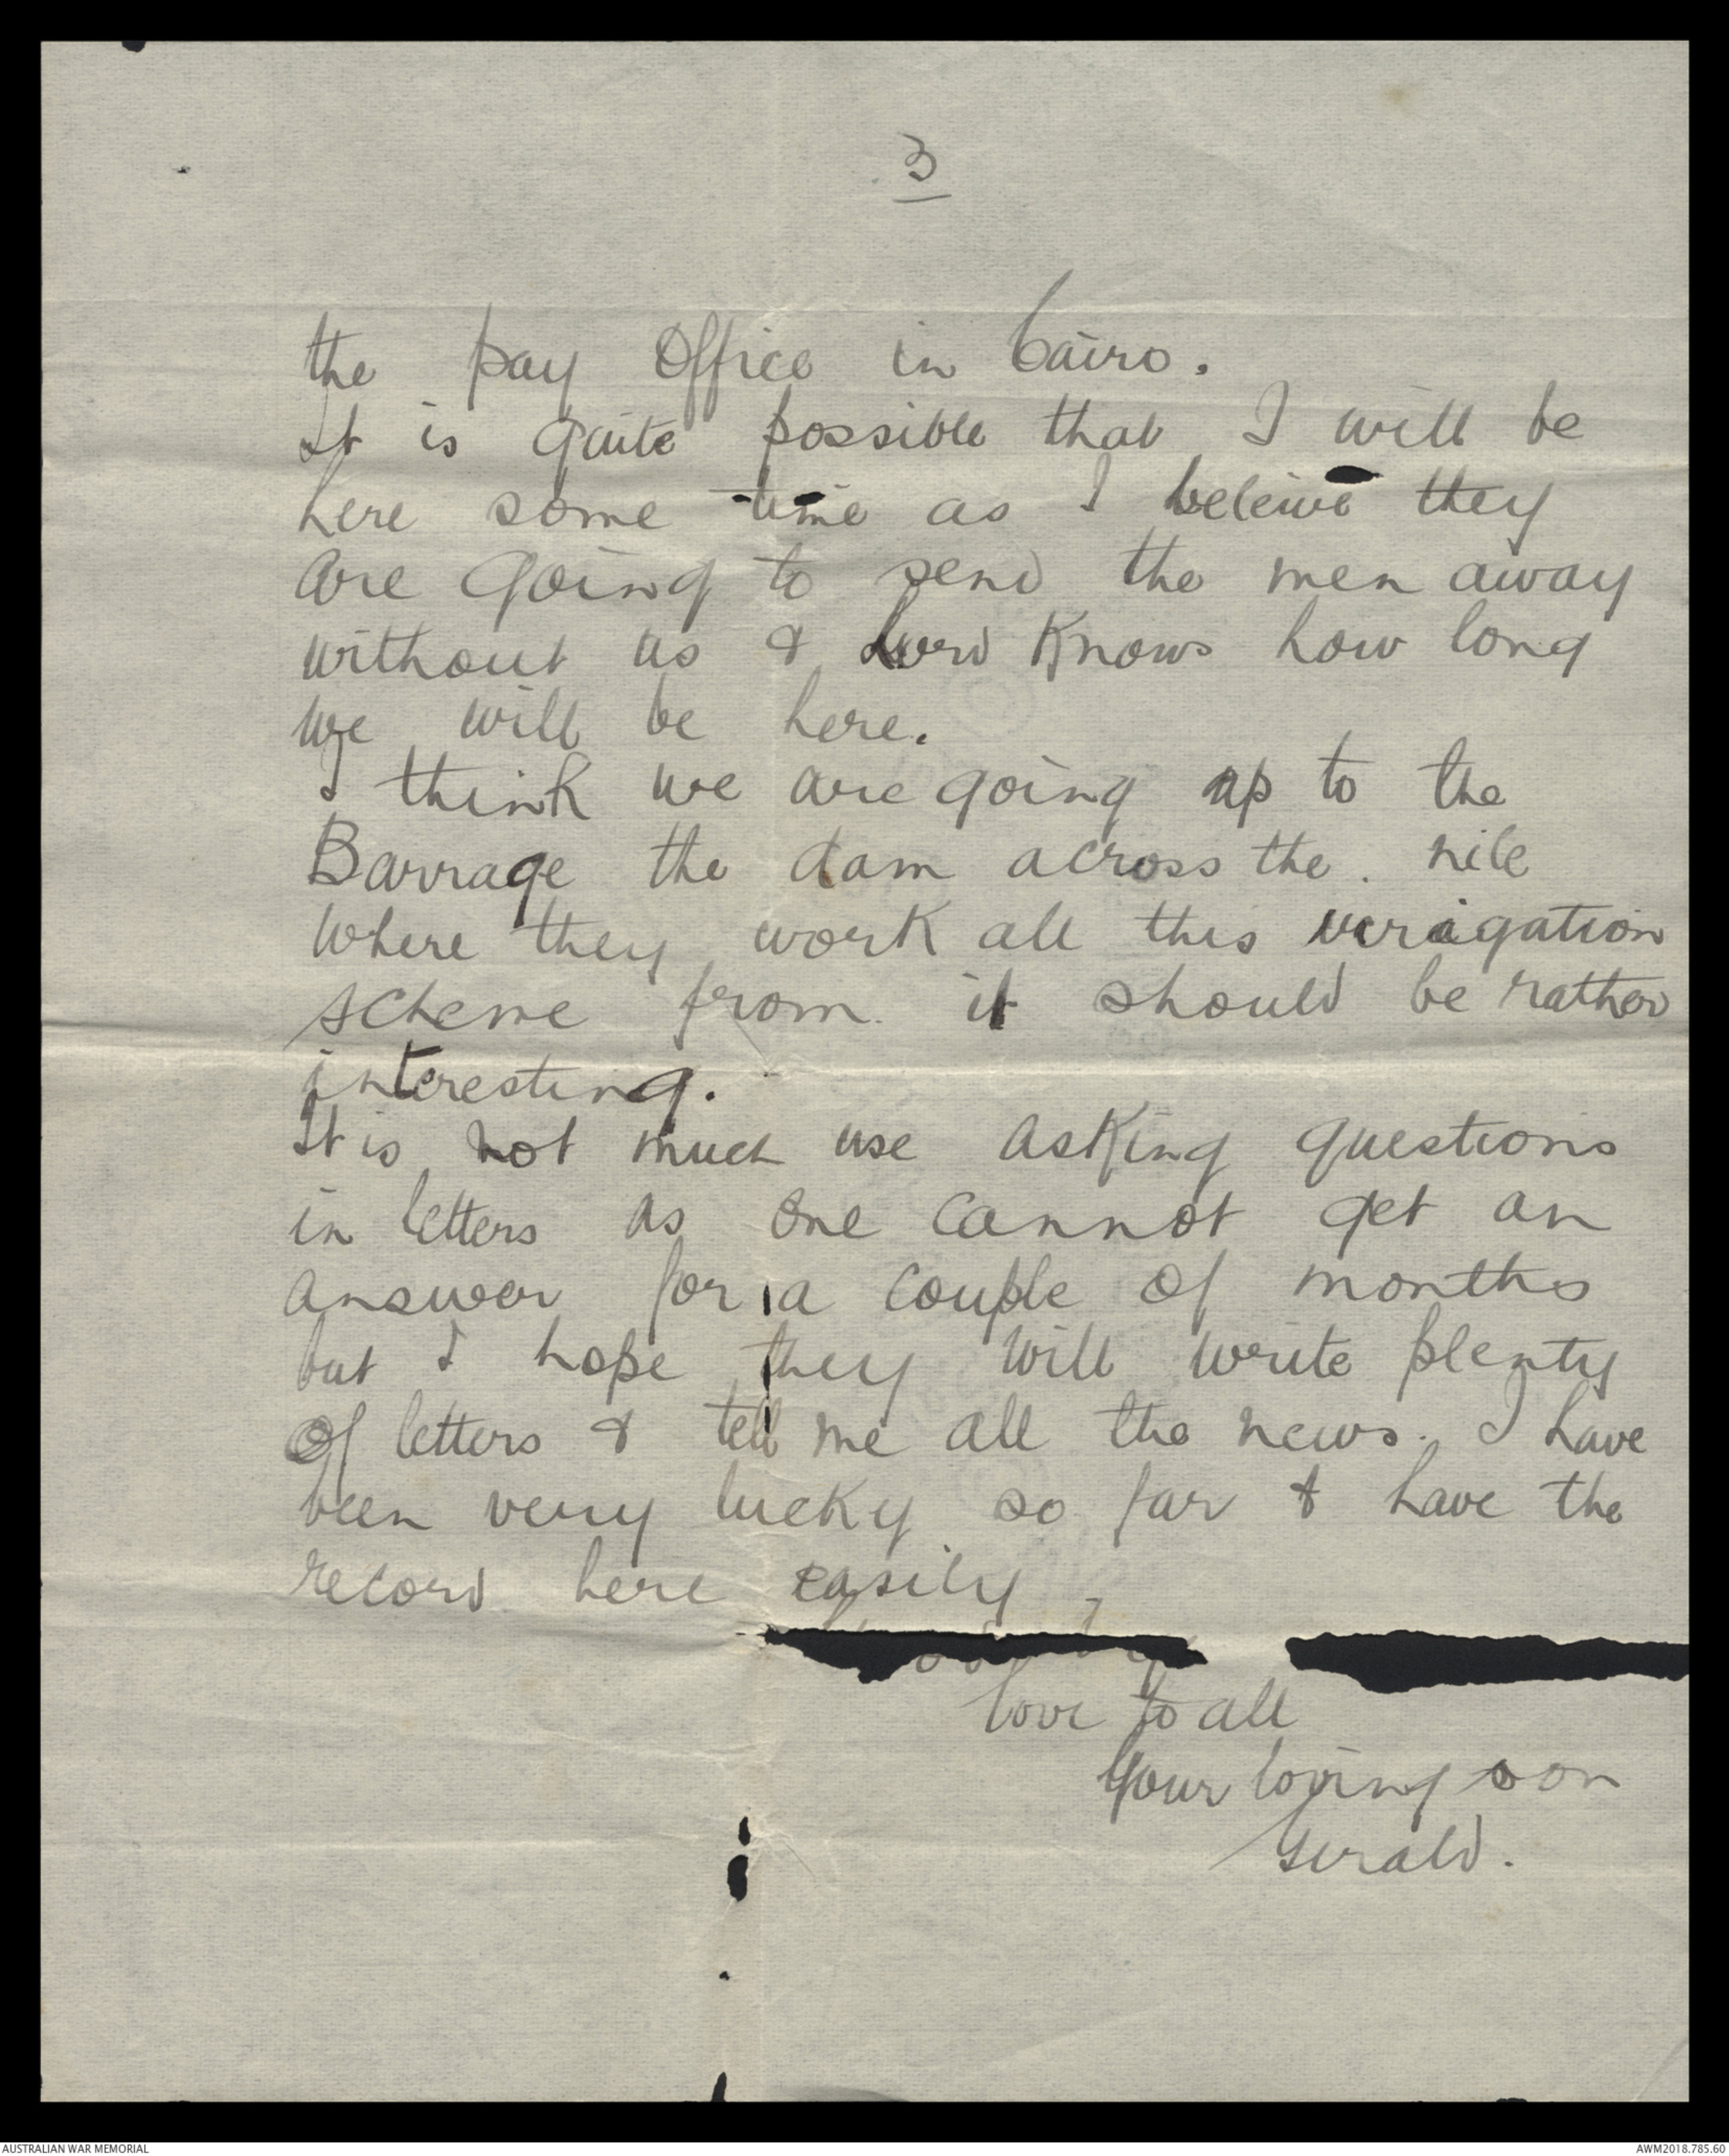 3
the pay Office in Cairo.
It is quite possible that I will be
here some time as I beleive they
are going to send the men away
without us & Lord Knows how long
we will be here.
I think we are going up to the
Barrage the dam across the nile
where they work all this irragation
scheme from it should be rather
interesting.
It is not much use asking questions
in letters as one cannot get an
answer for a couple of months
but I hope they will write plenty
of letters & tell me all the news. I have
been very lucky so far & have the
record here easily,
love to all
Your loving son
Gerald.
AUSTRALIAN WAR MEMORIAL
AWM2018.785.60